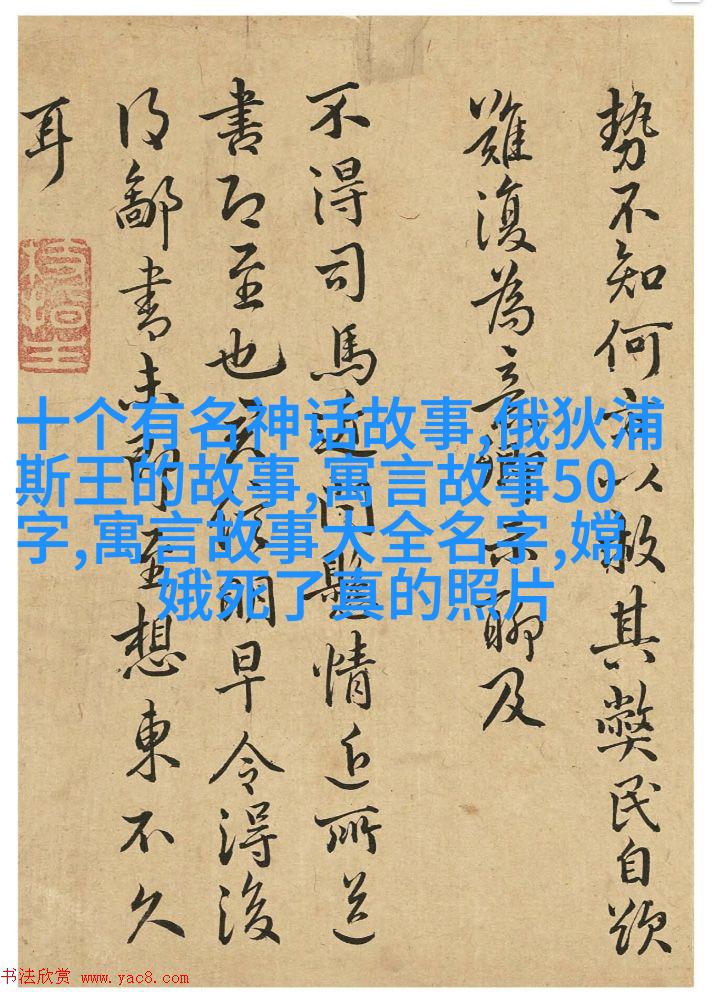 勢不知何方以救其弊民自
難復為意卿示聊及
不得司馬問懸情近所送
書即至也須明早令得後
得鄙書未即至想東不久
耳
十个有名神话故事,俄狄浦
斯王的故事,寓言故事50
字,寓言故事大全名字,嫦
娥死了真的照片
书法欣赏 www.yac8.com